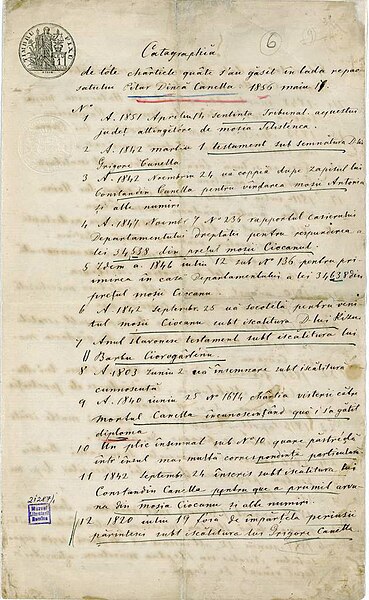 TIMBRU FIX
6
Catagraphia
de tóte chârtiele quâte s'au găsit in lada repau
satului Pitar Dincă Canella. 1856 maiu 17
No
1 A. 1851 Aprilu 14 sentinta Tribunal. acestui
judet attingëtore de mosia Telestenca.
2 A. 1842 martiu 1 testament sub semnătura D-lui
Grigore Canella
3 A. 1842 Noembriu 24 uă coppiă dupe zapisul lui
Constandin Canella pentru vindarea mosii Antonea
si alte numiri
4 A. 1847 Noembr 7 No 235 rapportul casierului
Departamentului dreptatei pentru respunderea a
lei 34538 din pretul mosii Ciocanul.
5 Idem a. 1846 iuniu 12 sub No 136 pentru pri
mirea in casa Departamentului a lei 34638 din
pretul mosii Ciocanu.
6 A. 1842 Septembr. 25 uă socotélă pentru veni
tul mosii Ciocanu subt iscălitura D-lui
7 Anul testament subt iscălitura lui
Barbu Ciorogârlénu
8 A. 1803 Iuniu 2 uă insemnare subt iscălitură
cunnoscută
9 A. 1840 iuniu 25 No 1674 chârtia vistierii cătrĕ
mortul Canella incunoscintând que i s'a gătit
diploma
10 Un plic insemnat sub No 10. quare pastrédă
intr'ënsul mai multă correspondintă particulară
11 1842 Septembr. 24 inscris subt iscălitura lui
Constandin Canella pentru que a primit arvu
na din mosia Ciocanu si alte numiri
12 1820 iuliu 19 fóiă de impartéla
părintésci subt iscălitura lui Grigore Canella
21287/1
Muzeul
Literaturii
Române